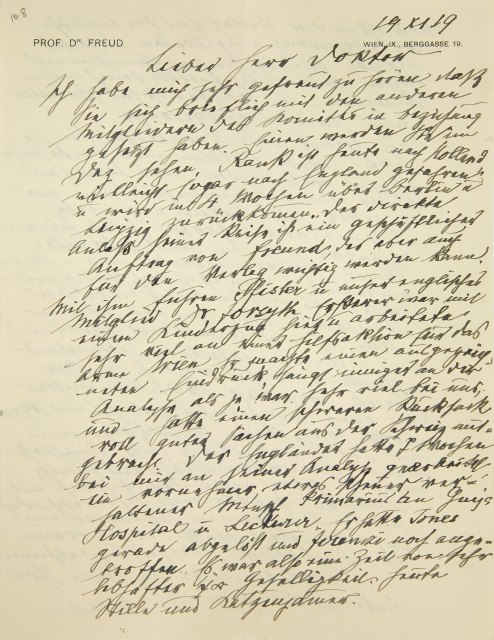 19 XI 19
PROF. DR. FREUD
WIEN, IX., BERGGASSE 19.
Lieber Herr Doktor
Ich habe mich sehr gefreut zu hören, daß
Sie sich brieflich mit den anderen
Mitgliedern des Komitees in Beziehung
gesetzt haben. Einen werden Sie im
Dez sehen. Rank ist heute nach Holland
vielleicht sogar nach England gefahren
u wird in 4 Wochen über Berlin u
Leipzig zurückkommen. Der direkte
Anlaß seiner Reise ist ein geschäftlicher
Auftrag von Freund, der aber auch
für den Verlag wichtig werden kann.
Mit ihm fuhren Pfister u unser englisches
Mitglied Dr Forsyth. Ersterer war mit
einem Kinderzug hier u arbeitete
sehr viel an einer Hilfsaktion für das
arme Wien. Er machte einen ausgezeich-
neten Eindruck, hängt inniger an der
Analyse als je, war sehr viel bei uns
und hatte einen schweren Rucksack
voll guter Sachen aus der Schweiz mit-
gebracht. Der Engländer hatte 7 Wochen
bei mir an seiner Analyse gearbeitet,
ein vornehmer, etwas
haltener Mensch, Primarius am Guys
Hospital u Lecturer. Er hatte Jones
gerade abgelöst und Ferenczi noch ange-
troffen. Es war also eine Zeit von sehr
lebhafter Geselligkeit. Heute
Stille und Katzenjammer.